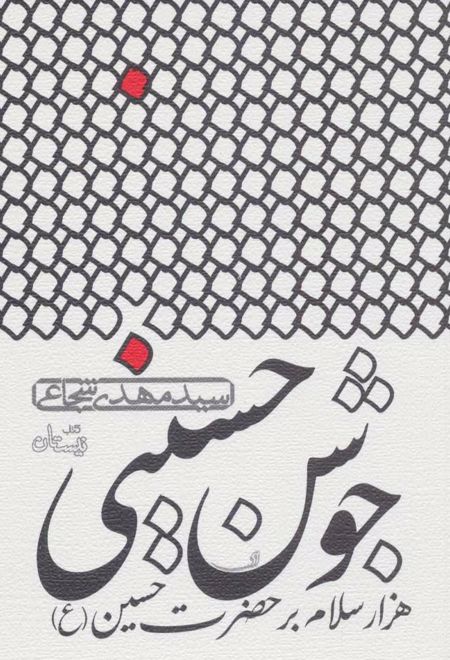 جوشن حسینی
سید مهدی شجاعی
کتاب نیستان
هزار سلام بر حضرت حسین (ع)